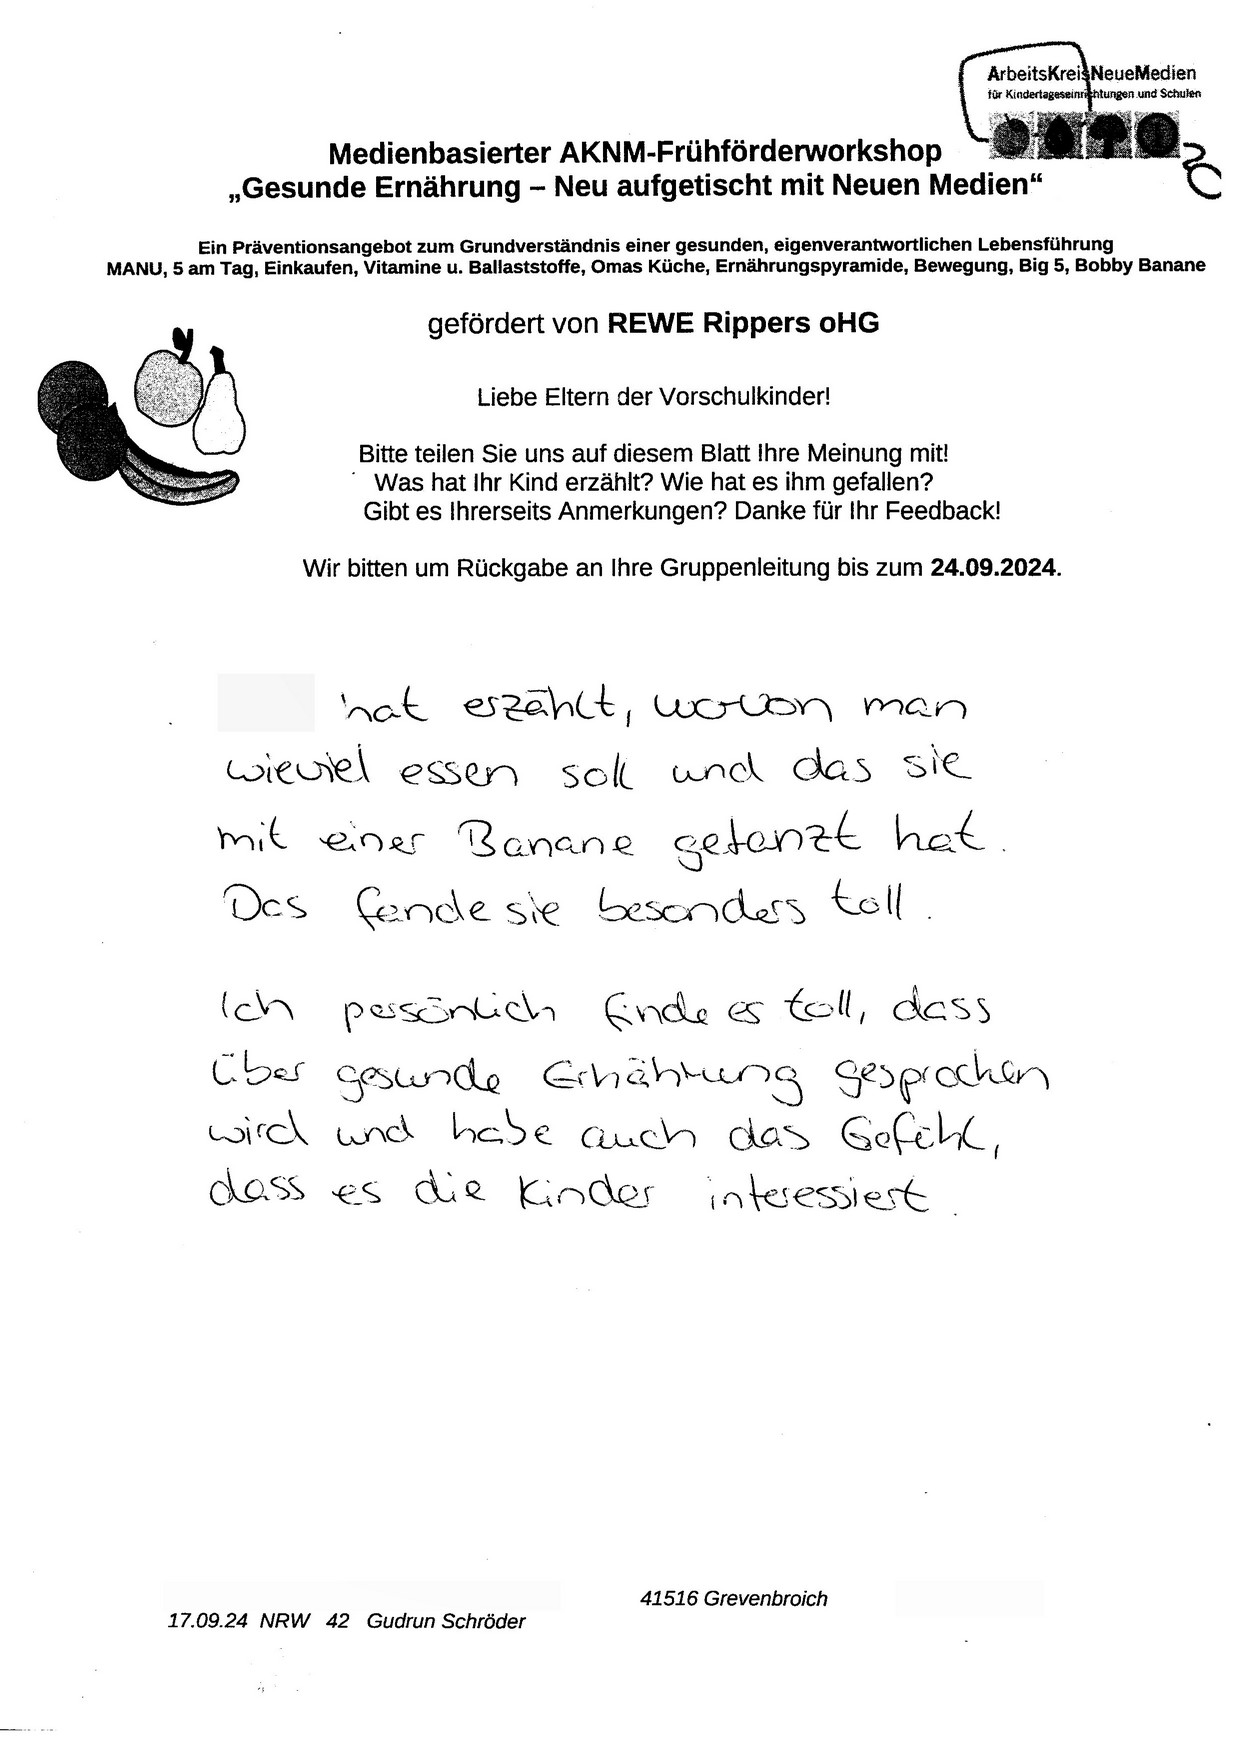 ArbeitsKreisNeueMedien
für Kindertageseinrichtungen und Schulen
Medienbasierter AKNM-Frühförderworkshop
„Gesunde Ernährung – Neu aufgetischt mit Neuen Medien“
Ein Präventionsangebot zum Grundverständnis einer gesunden, eigenverantwortlichen Lebensführung
MANU, 5 am Tag, Einkaufen, Vitamine u. Ballaststoffe, Omas Küche, Ernährungspyramide, Bewegung, Big 5, Bobby Banane
gefördert von REWE Rippers oHG
Liebe Eltern der Vorschulkinder!
Bitte teilen Sie uns auf diesem Blatt Ihre Meinung mit!
Was hat Ihr Kind erzählt? Wie hat es ihm gefallen?
Gibt es Ihrerseits Anmerkungen? Danke für Ihr Feedback!
Wir bitten um Rückgabe an Ihre Gruppenleitung bis zum 24.09.2024.
hat erzählt, wovon man
wieviel essen soll und das sie
mit einer Banane getanzt hat.
Das fande sie besonders toll.
Ich persönlich finde es toll, dass
über gesunde Ernährung gesprochen
wird und habe auch das Gefühl,
dass es die Kinder interessiert.
41516 Grevenbroich
17.09.24 NRW 42 Gudrun Schröder